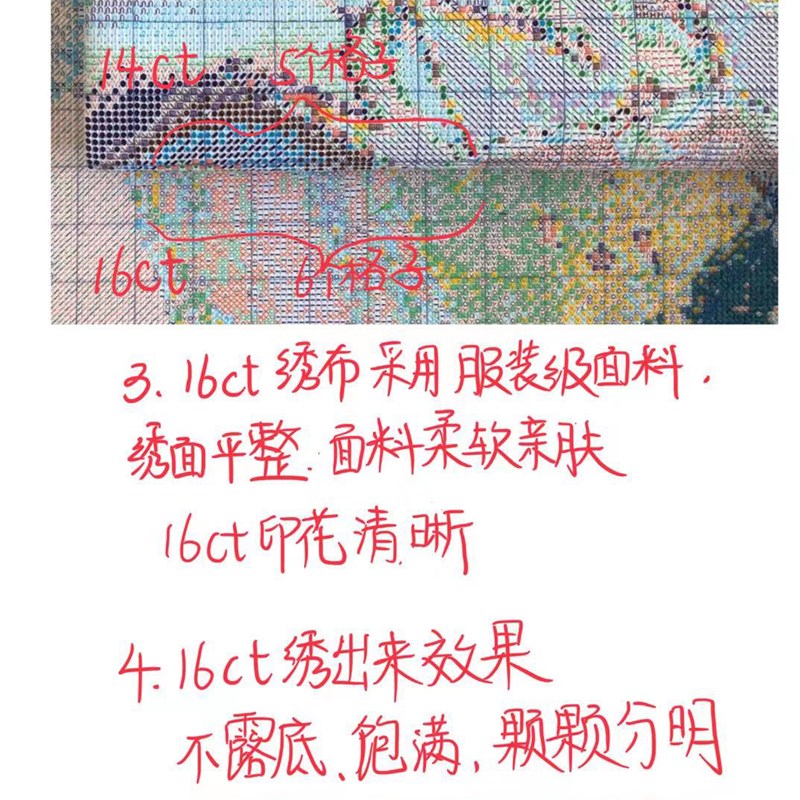 14ct 5个格子
16ct 6个格子
3. 16ct 绣布采用服装级面料.
绣面平整.面料柔软亲肤
16ct印花清晰
4.16ct绣出来效果
不露底、饱满、颗颗分明